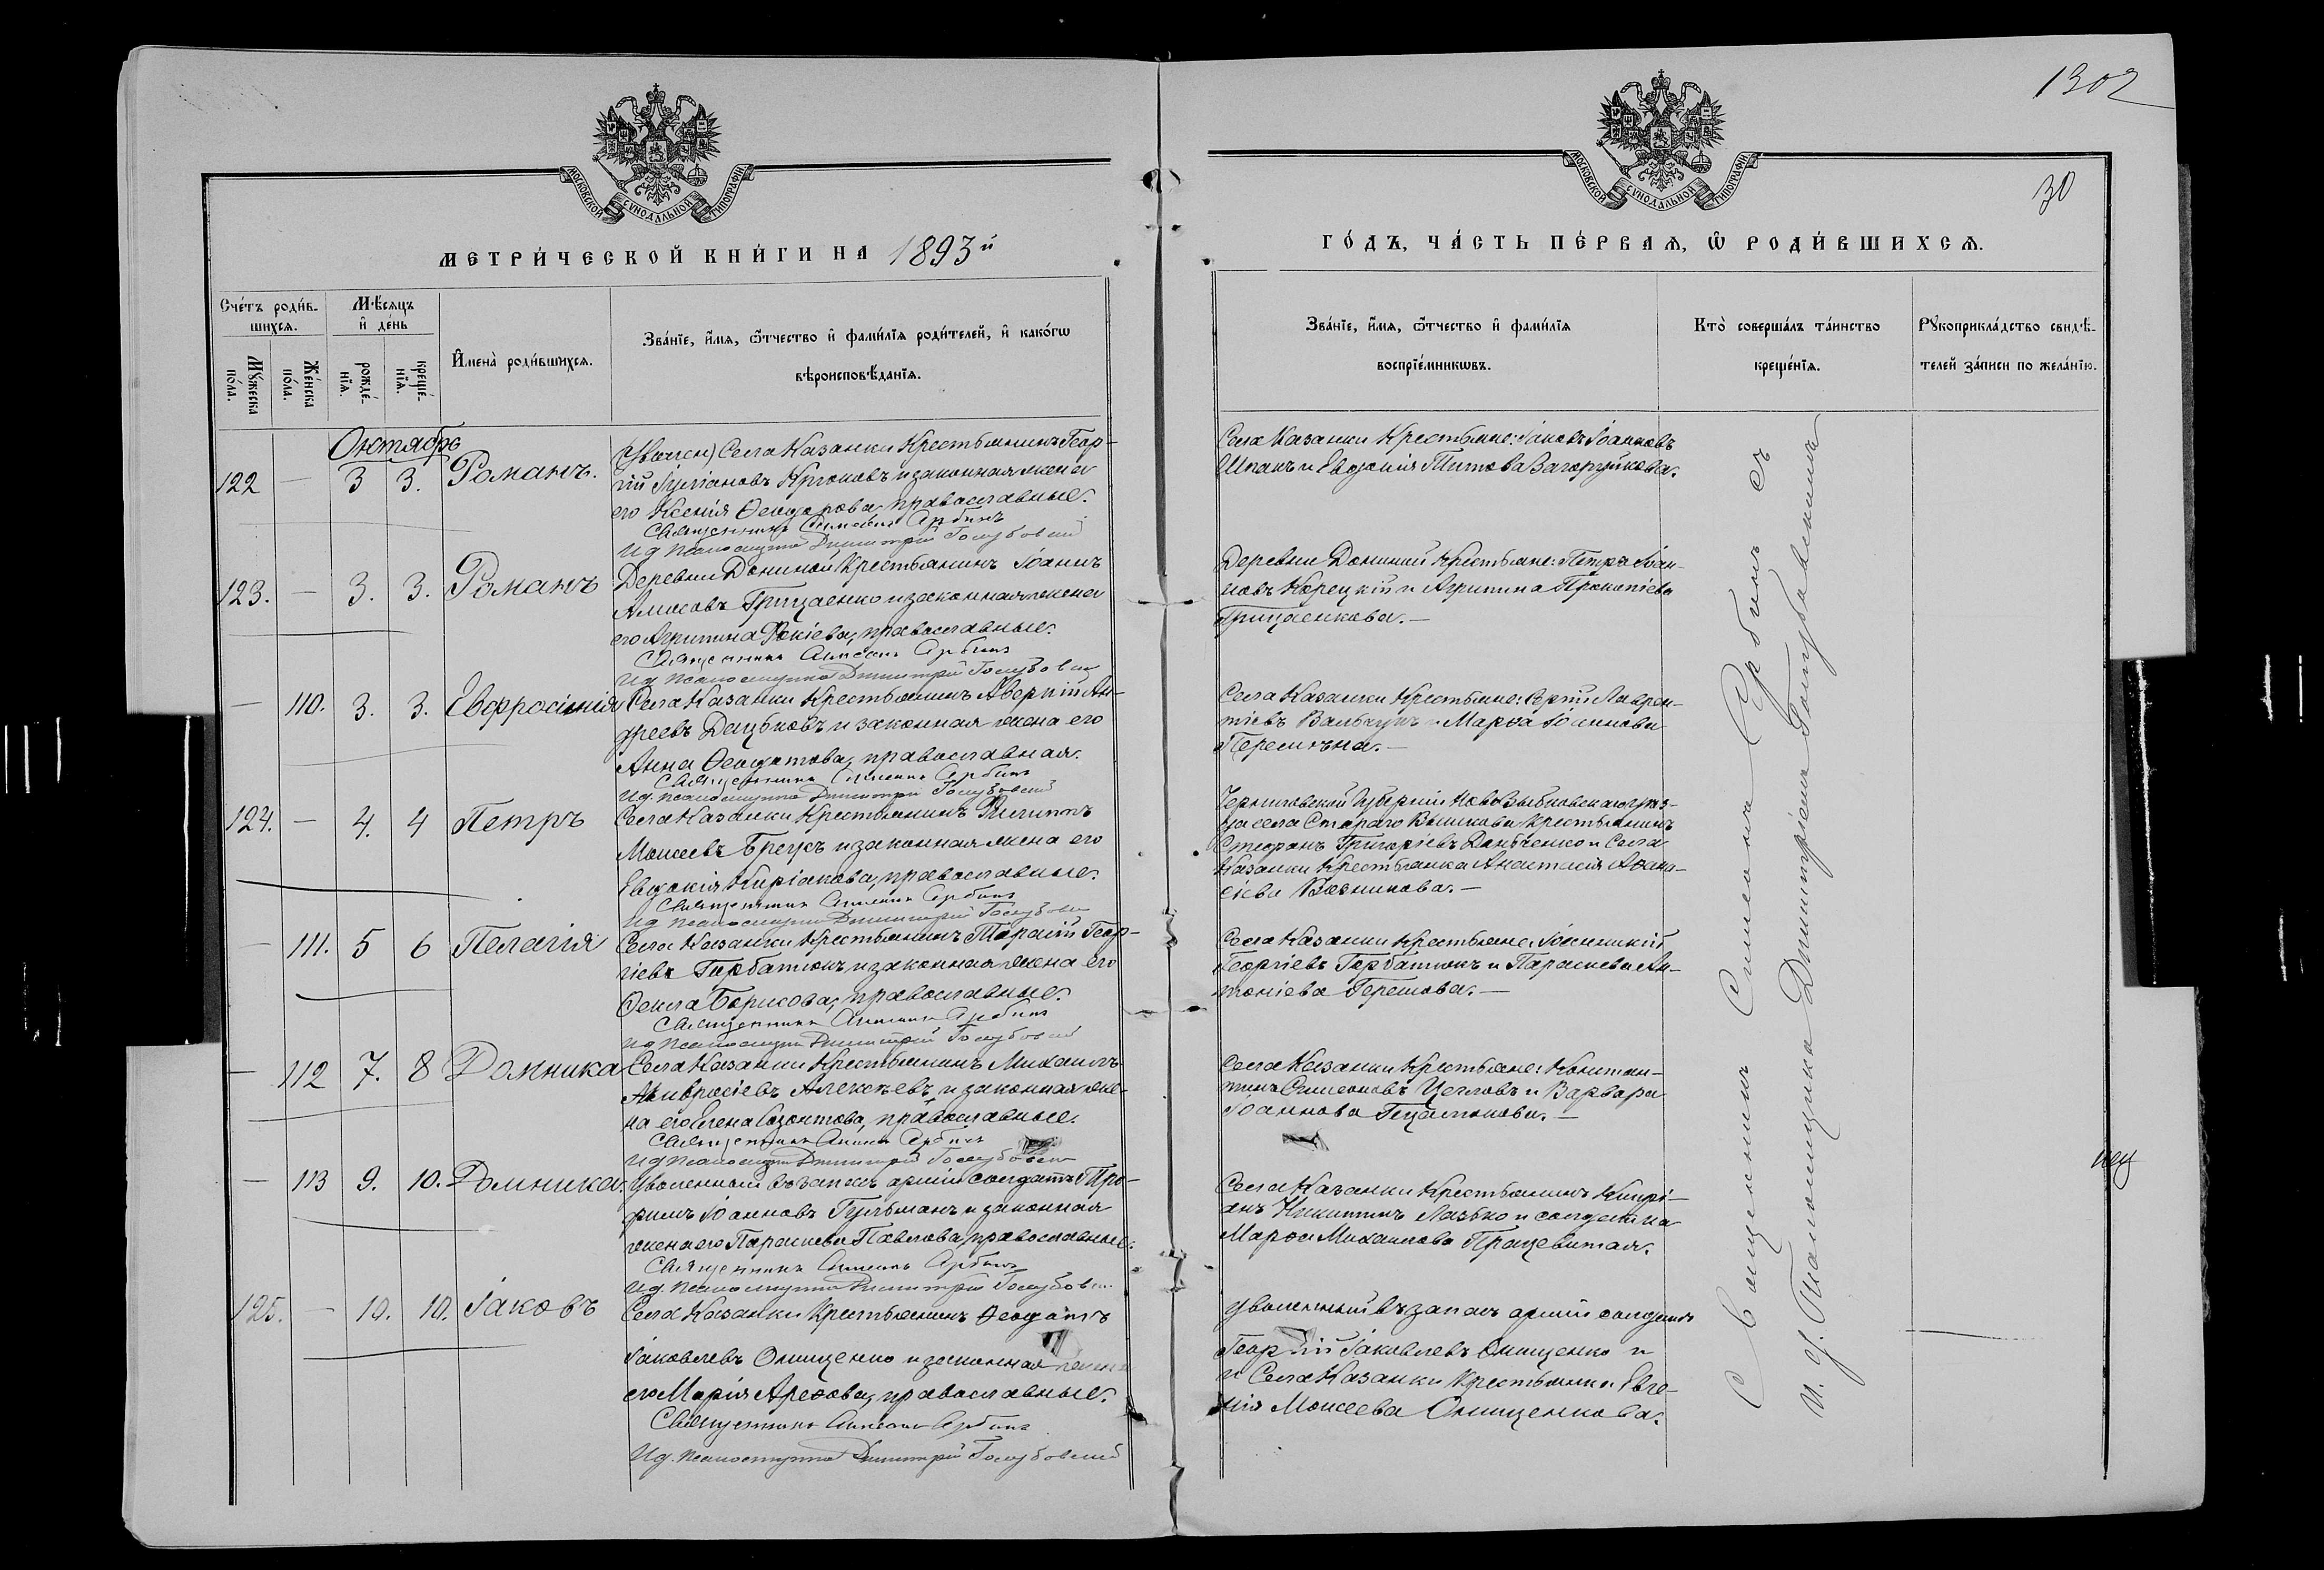 1302
30
МОСКОВСКОЙ СУНОДАЛЬНОЙ ТИПОГРАФІИ
МЕТРИ́ЧЕСКОЙ КНИ́ГИ НА 1893й
Сче́тъ роди́вшихся.
Мѣ́сяцъ и де́нь
Мꙋ́жеска по́ла.
Же́нска по́ла.
рожде́нїя.
креще́нїя.
Имена̀ роди́вшихся.
Зва́нїе, и́мя, ѻ҆́тчество и фами́лїя роди́телей, и како́гѡ
вѣроисповѣ́данїя.
Октябрь
122 — 3 3. Романъ.
Села Казанки Крестьянинъ Геор-
гій Кръковъ и законная жена
его Ксенія Ѳеодорова, православные.
Священникъ Симеонъ Сербинъ
И д. псаломщика Димитрій Голубовскій
123. — 3. 3. Романъ
Деревни Дониной Крестьянинъ Іоаннъ
Амосовъ Грицаенко и законная жена
его Агрипина Фокіева, православные.
Священникъ Симеонъ Сербинъ
И д. псаломщика Димитрій Голубовскій
— 110. 3. 3. Евфросинія
Села Казанки Крестьянинъ Аверкій Ан-
дреевъ Децыковъ и законная жена его
Анна Ѳеодотова, православная.
Священникъ Симеонъ Сербинъ
И д. псаломщика Димитрій Голубовскій
124. — 4. 4 Петръ
Села Казанки Крестьянинъ Филиппъ
Моисеевъ Брецъ и законная жена его
Евдокія Киріакова, православные.
Священникъ Симеонъ Сербинъ
И д. псаломщика Димитрій Голубовскій
— 111. 5 6 Пелагія
Села Казанки Крестьянинъ Тарасій Геор-
гіевъ Горбатюкъ и законная жена его
Ѳекла Борисова, православные.
Священникъ Симеонъ Сербинъ
И д псаломщика Димитрій Голубовскій
— 112 7. 8 Домника
Села Казанки Крестьянинъ Михаилъ
Амвросіевъ Алексѣевъ и законная же-
на его Елена Созонтова, православные.
Священникъ Симеонъ Сербинъ
И д псаломщика Димитрій Голубовскій
— 113 9. 10. Домника.
Уволенный въ запасъ арміи солдатъ Тро-
фимъ Іоанновъ Гульманъ и законная
жена его Параскева Павлова, православные.
Священникъ Симеонъ Сербинъ
И д. псаломщика Димитрій Голубовскій
125. — 10. 10. Іаковъ
Села Казанки Крестьянинъ Ѳеодотъ
Іаковлевъ Онищенко и законная жена
его Марія Арефова, православные.
Священникъ Симеонъ Сербинъ
И д. псаломщика Димитрій Голубовскій
МОСКОВСКОЙ СУНОДАЛЬНОЙ ТИПОГРАФІИ
ГО́ДЪ, ЧА́СТЬ ПЕ́РВАЯ, Ѡ҆ РОДИ́ВШИХСЯ.
Зва́нїе, и́мя, ѻ҆́тчество и фами́лїя
воспрїе́мникѡвъ.
Кто̀ соверша́лъ та́инство
креще́нїя.
Рꙋкоприкла́дство свидѣ́-
телей за́писи по жела́нїю.
Села Казанки Крестьяне: Іаковъ Іоанновъ
Шпакъ и Евдокія Титова Загоруйкова.
Деревни Дониной Крестьяне: Петръ Іоан-
новъ Корецкій и Агрипина Прокопіева
Грицаенкова. —
Села Казанки Крестьяне: Сергій Лаврен-
тіевъ и Марѳа Іоаннова
Черниговской Губерніи Новозыбковскаго уѣз-
да села Стараго Вышкова крестьянинъ
Стефанъ Григоріевъ Данченко и Села
Казанки Крестьянка Анастасія Аѳана-
сіева —
Села Казанки Крестьяне: Іоанникій
Георгіевъ Горбатюкъ и Параскева Ан-
тоніева Терешова. —
Села Казанки Крестьяне: Констан-
тинъ Симеоновъ Цегловъ и Варвара
Іоаннова —
Села Казанки Крестьянинъ Кипрі-
анъ Никитинъ Лазько и солдатка
Марѳа Михаилова Працевитая.
Уволенный въ запасъ арміи солдатъ
Георгій Іаковлевъ Онищенко и
и Села Казанки Крестьянка Евге-
нія Моисеева Онищенкова.
Священникъ Симеонъ Сербинъ съ
И. д. Псаломщика Димитріемъ Голубовскимъ